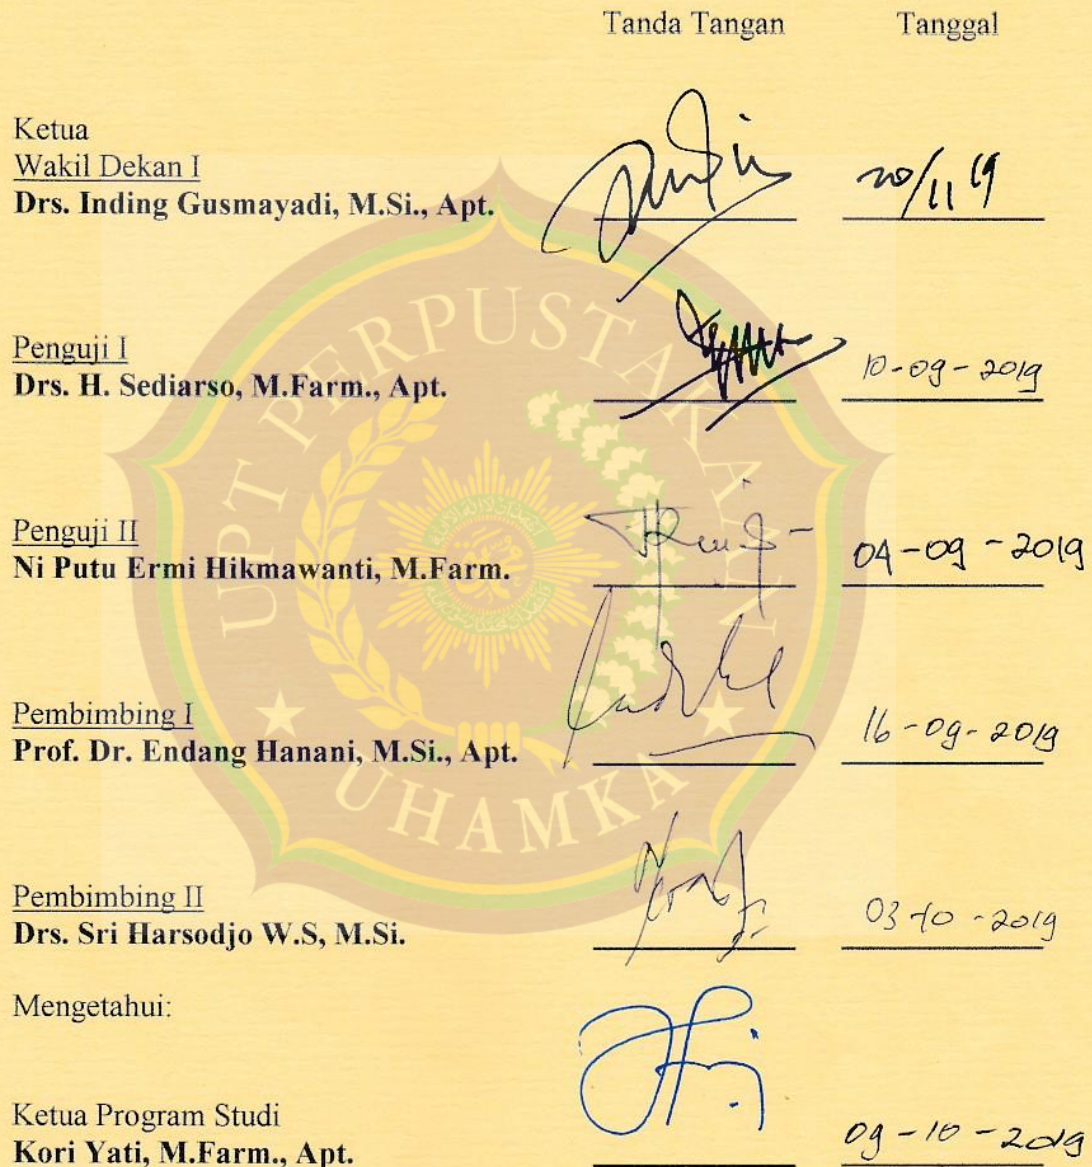 Tanda Tangan Tanggal
Ketua
Wakil Dekan I
Drs. Inding Gusmayadi, M.Si., Apt.
20/11 19
Penguji I
Drs. H. Sediarso, M.Farm., Apt.
10-09-2019
Penguji II
Ni Putu Ermi Hikmawanti, M.Farm.
04-09-2019
Pembimbing I
Prof. Dr. Endang Hanani, M.Si., Apt.
16-09-2019
Pembimbing II
Drs. Sri Harsodjo W.S, M.Si.
03-10-2019
Mengetahui:
Ketua Program Studi
Kori Yati, M.Farm., Apt.
09-10-2019
UPT PERPUSTAKAAN
UHAMKA